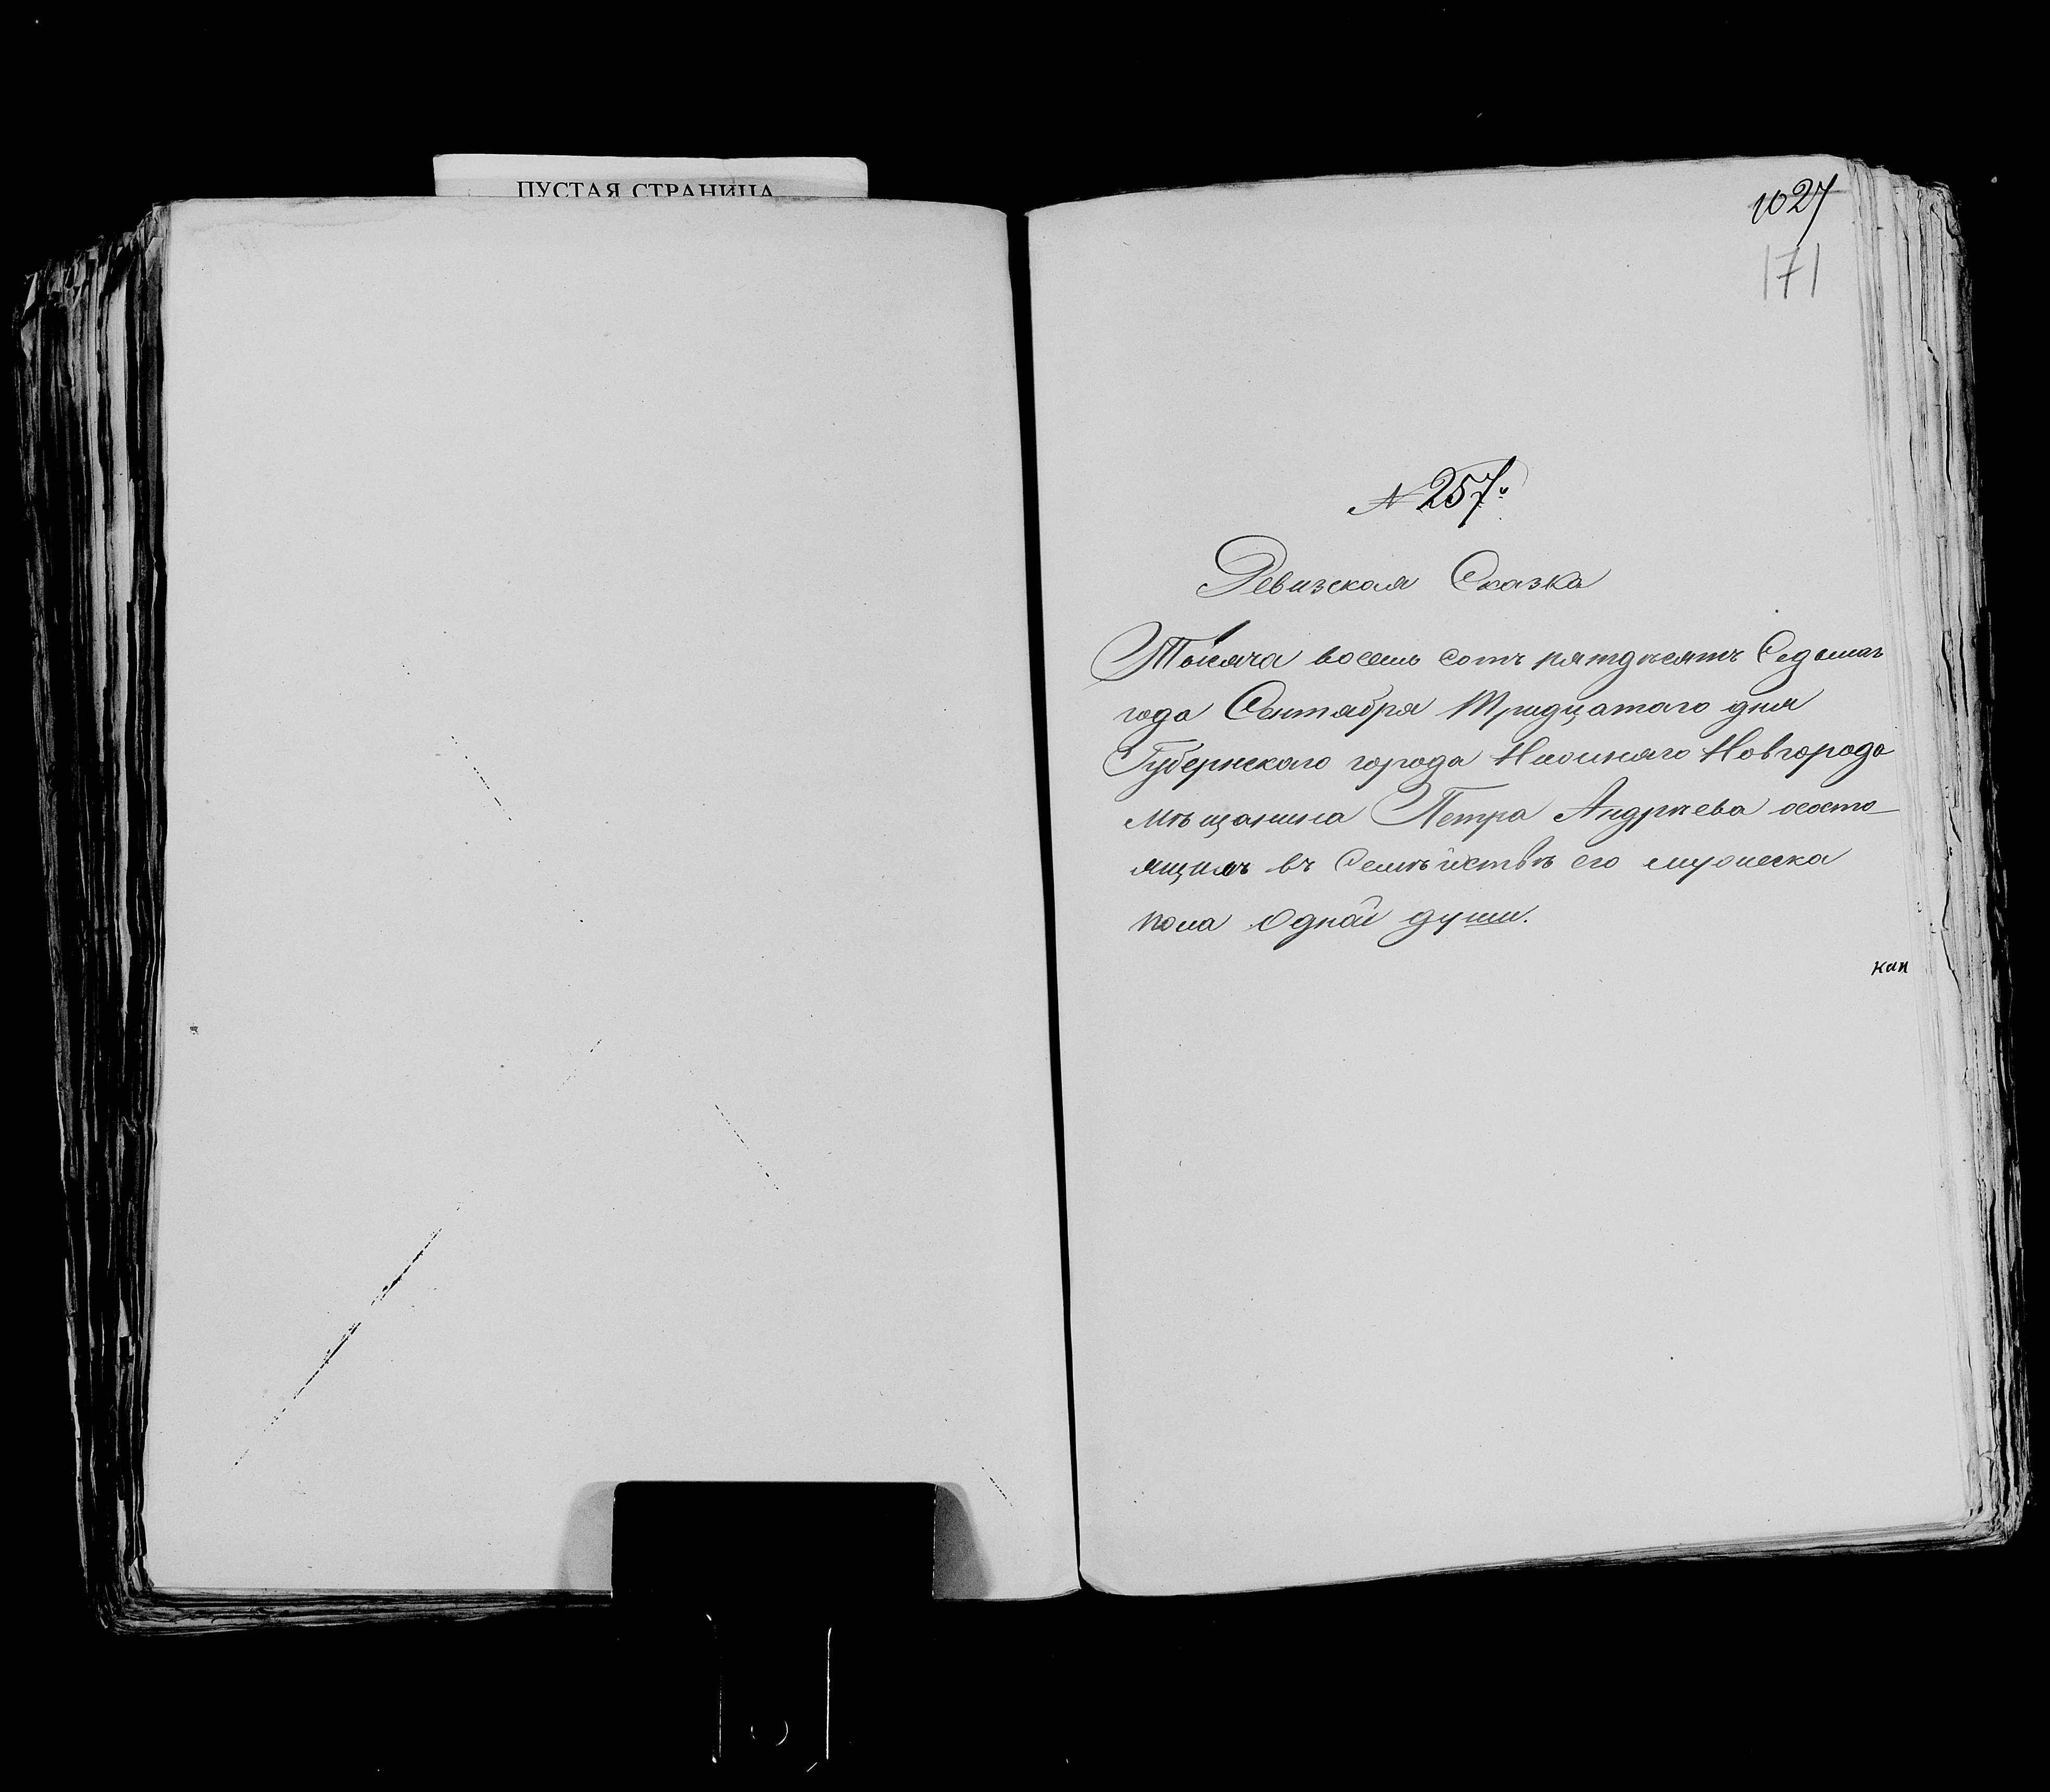 ПУСТАЯ СТРАНИЦА
1027
171
№ 257.
Ревизская Сказка
Тысяча восемь сотъ пятдѣсятъ Седьмаг
года Сентября Тридцатаго дня
Губернскаго города Нижняго Новгорода
мѣщанина Петра Андрѣева о состо-
ящихъ въ Семѣйствѣ его мужеска
пола одной души.